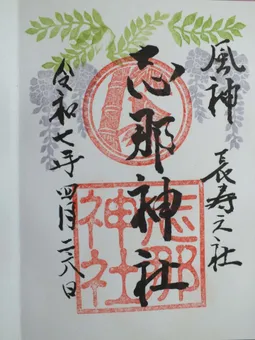 風神
長寿之社
志那神社
令和七年四月二八日
志那
神社